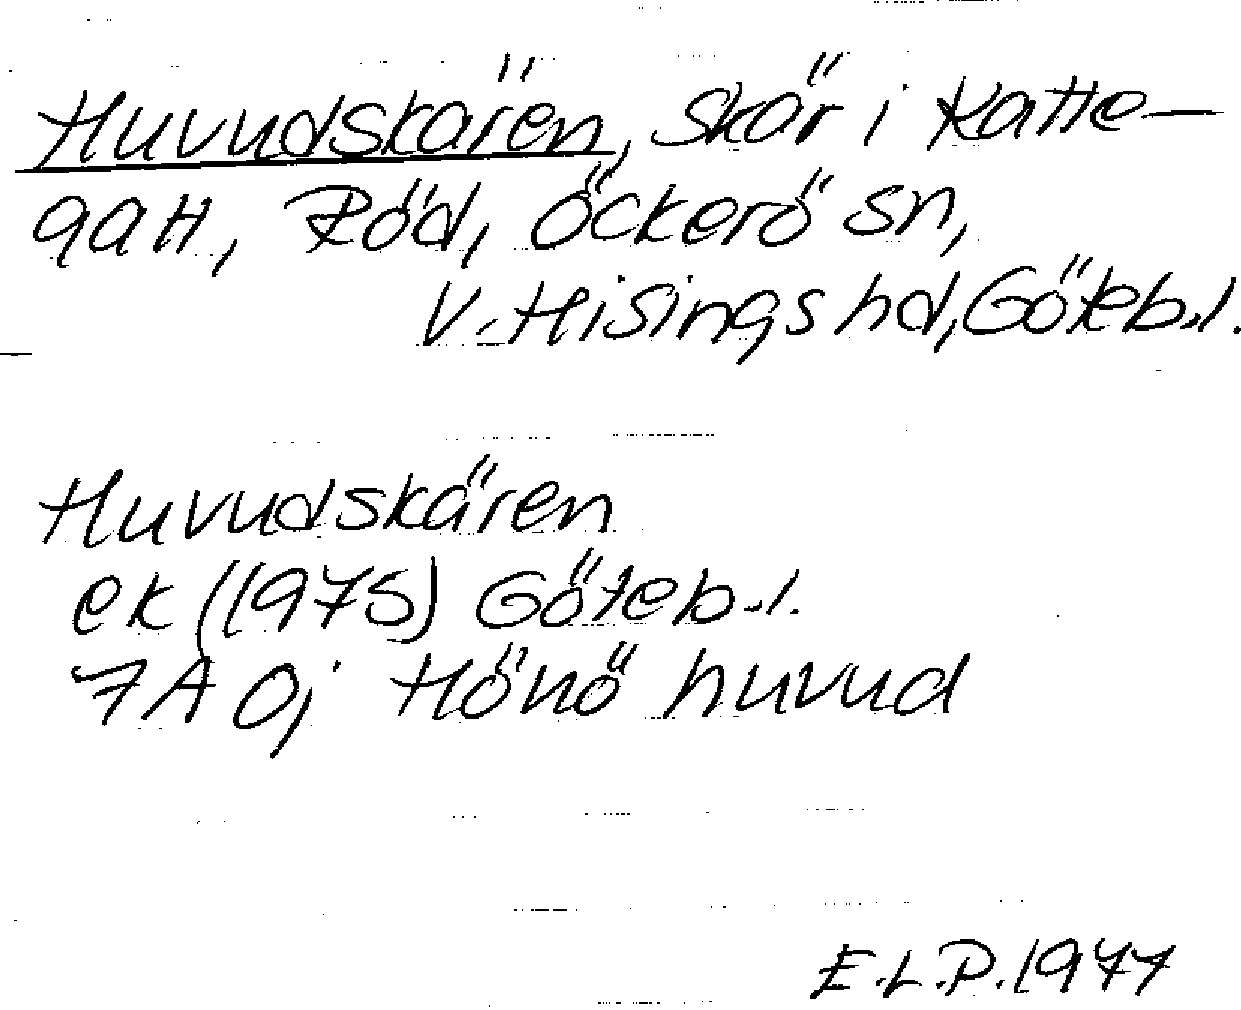 Huvudskären, skär i Katte-
gatt, Röd, Öckerö sn,
V. Hisings hd, Göteb.l.
Huvudskären
ek (1975) Göteb.l.
7A 0j Hönö huvud
E.L.P. 1977